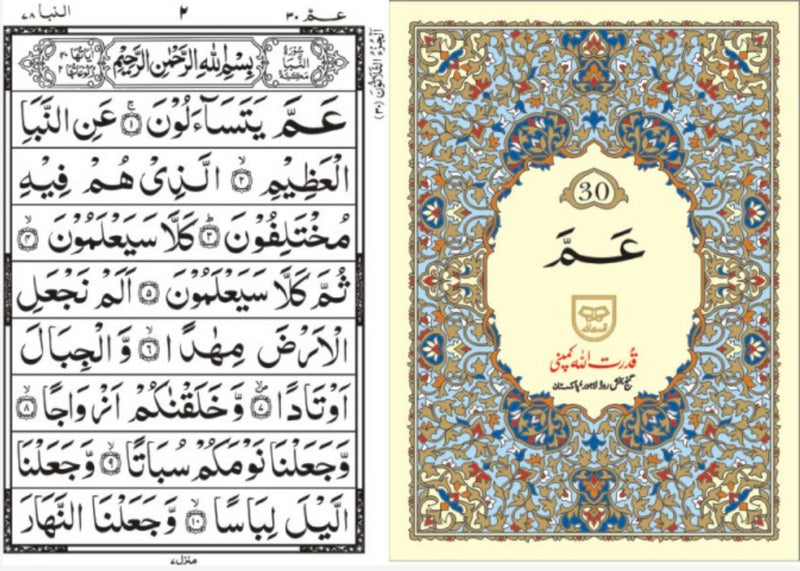 عمّ ٣٠
٢
النبا ٧٨
الجزء الثلاثون (٣٠)
سُوْرَةُ النَّبَاِ مَكِّيَّةٌ
بِسْمِ اللّٰهِ الرَّحْمٰنِ الرَّحِيْمِ
اٰيَاتُهَا ٤٠
رُكُوْعَاتُهَا ٢
عَمَّ يَتَسَآءَلُوْنَ ۚ ١ عَنِ النَّبَاِ
الْعَظِيْمِ ۙ ٢ الَّذِىْ هُمْ فِيْهِ
مُخْتَلِفُوْنَ ؕ ٣ كَلَّا سَيَعْلَمُوْنَ ۙ ٤
ثُمَّ كَلَّا سَيَعْلَمُوْنَ ٥ اَلَمْ نَجْعَلِ
الْاَرْضَ مِهٰدًا ۙ ٦ وَّالْجِبَالَ
اَوْتَادًا ۪ۙ ٧ وَّخَلَقْنٰكُمْ اَزْوَاجًا ۙ ٨
وَّجَعَلْنَا نَوْمَكُمْ سُبَاتًا ۙ ٩ وَّجَعَلْنَا
الَّيْلَ لِبَاسًا ۙ ١٠ وَّجَعَلْنَا النَّهَارَ
منزل ٧
30
عَمَّ
قُدرت اللہ کمپنی
گنج بخش روڈ لاہور پاکستان